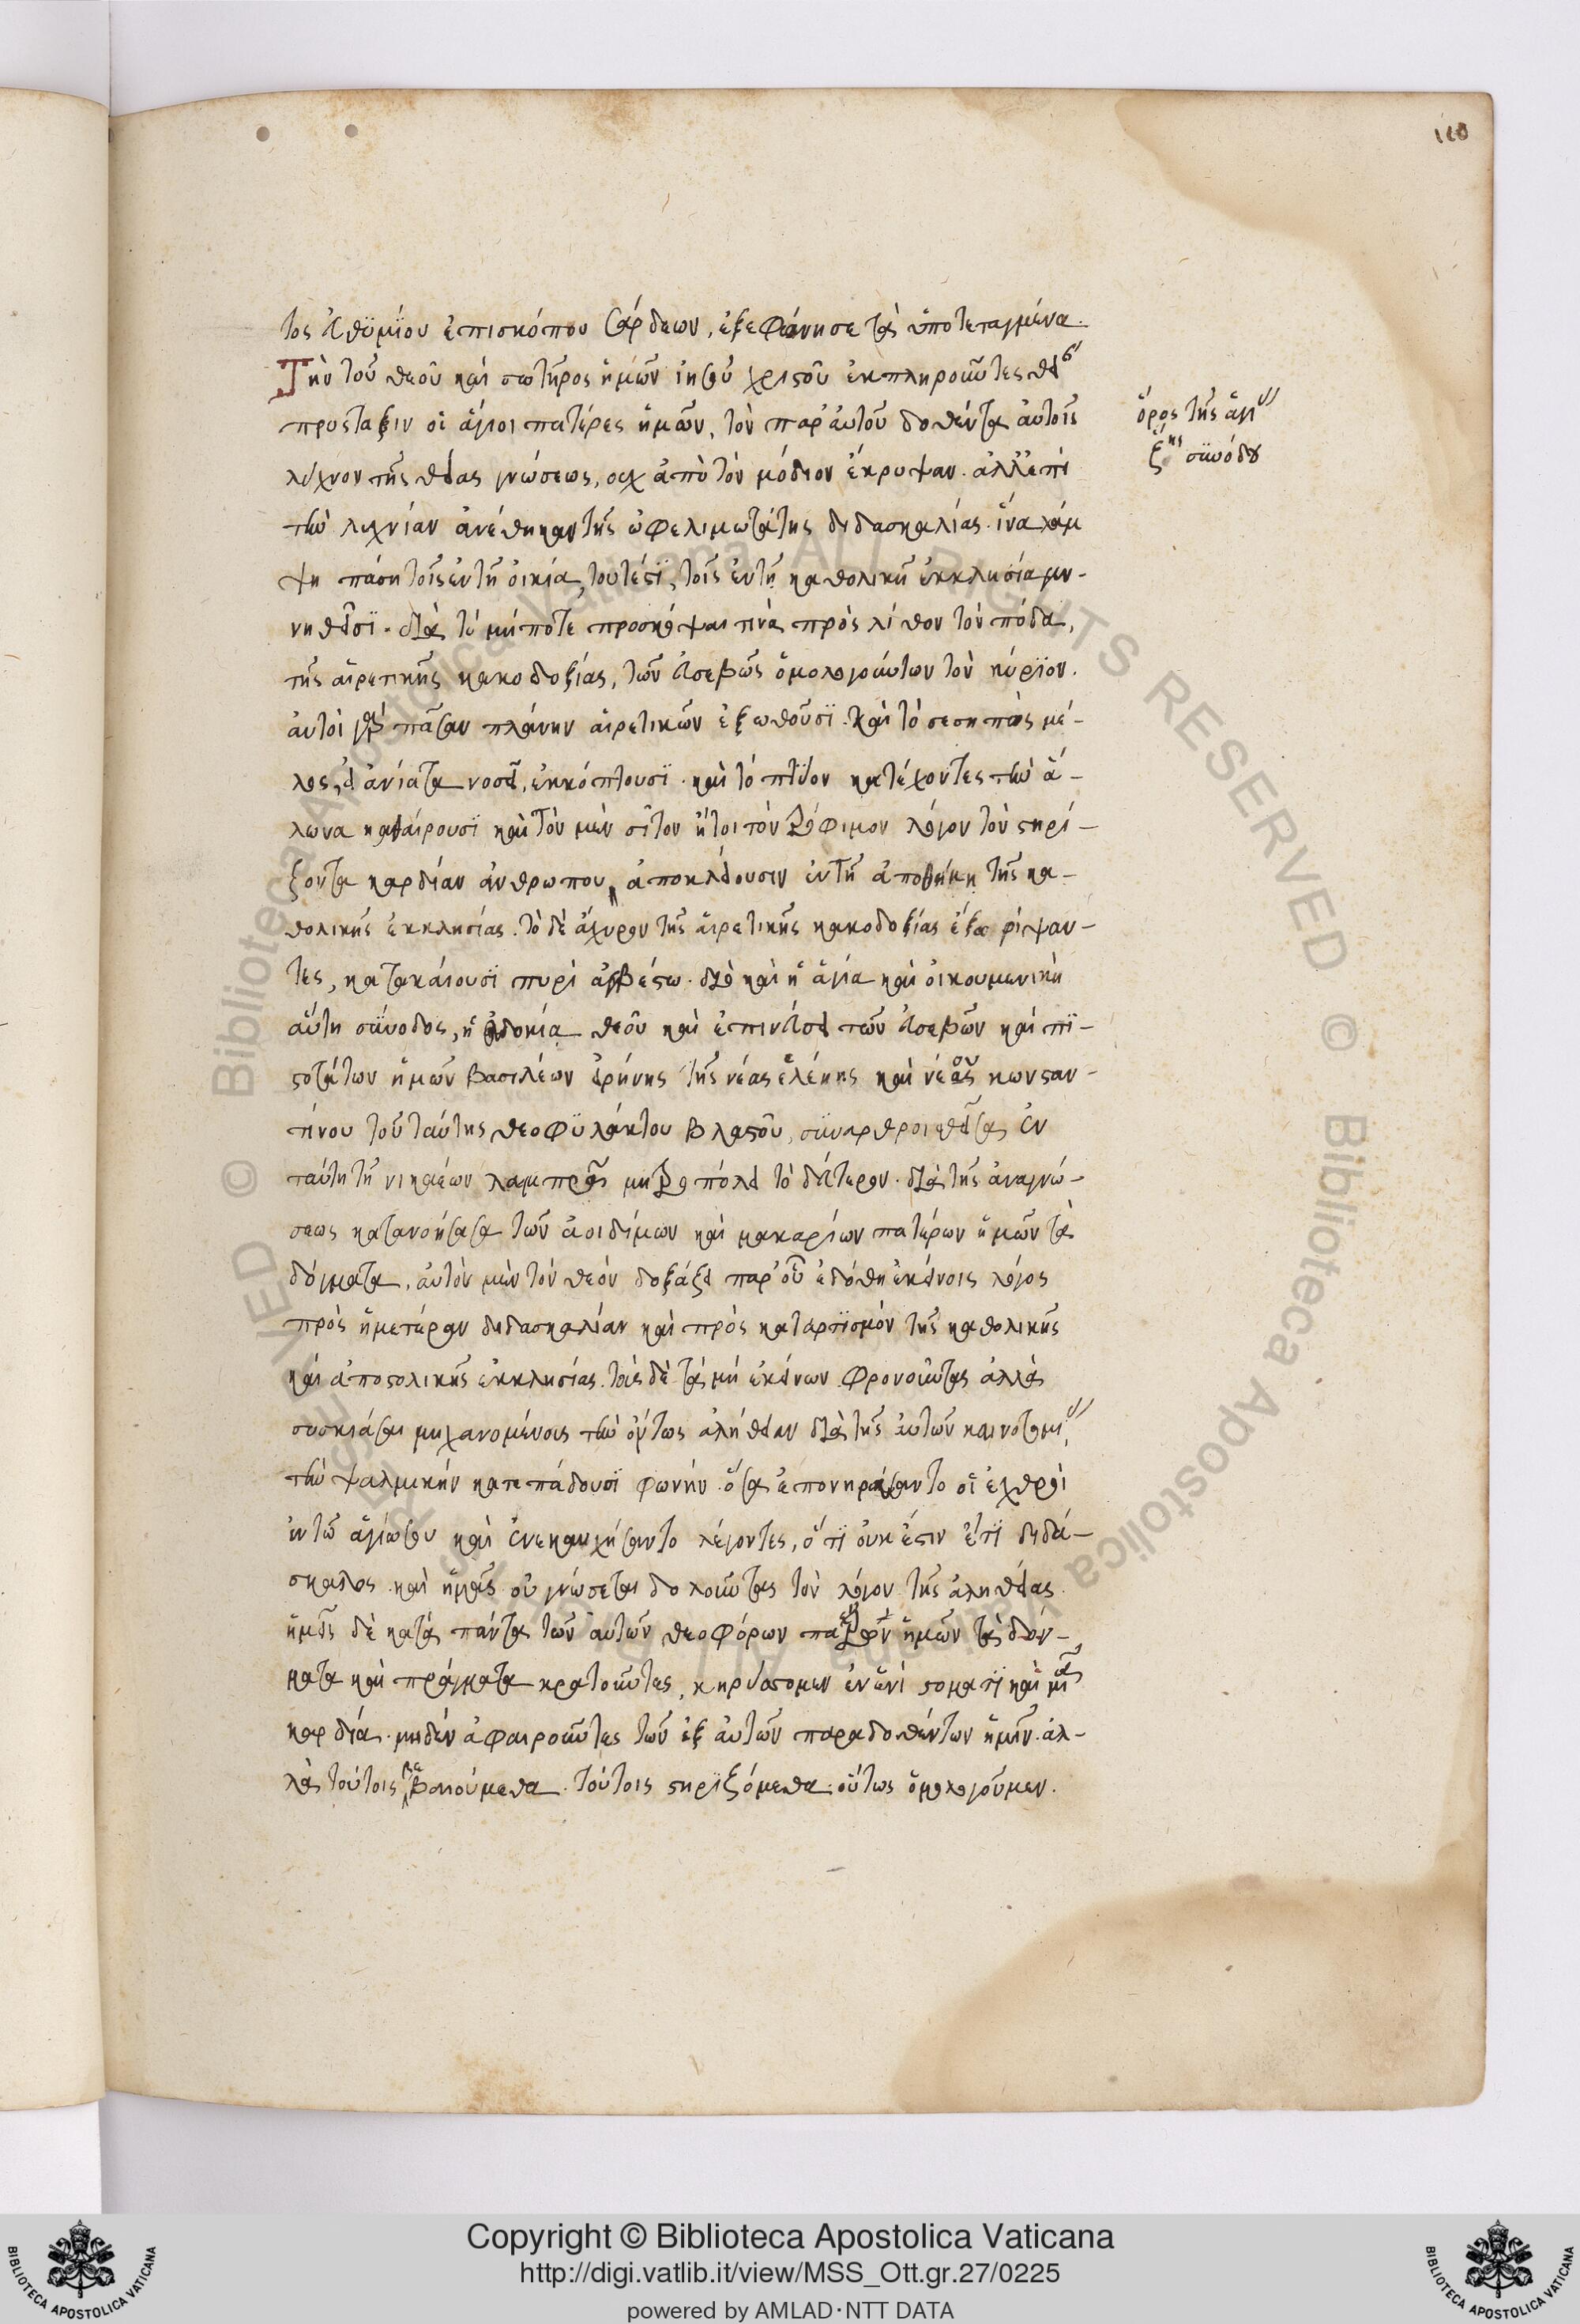 110
τος εὐθυμίου ἐπισκόπου σάρδεων, ἐξεφώνησε τὰ ὑποτεταγμένα.
Τὴν τοῦ θεοῦ καὶ σωτῆρος ἡμῶν ἰησοῦ χριστοῦ ἐκπληροῦντες θεί
πρόσταξιν οἱ ἅγιοι πατέρες ἡμῶν, τὸν παρ' αὐτοῦ δοθέντα αὐτοῖς
λύχνον τῆς θείας γνώσεως, οὐχ ὑπὸ τὸν μόδιον ἔκρυψαν. ἀλλ' ἐπὶ
τὴν λυχνίαν ἀνέθηκαν τῆς ὠφελιμωτάτης διδασκαλίας. ἵνα λάμ
ψη πάση τοῖς ἐν τῆ οἰκία, τουτέστι, τοῖς ἐν τῆ καθολικῆ ἐκκλησία γεν-
νηθεῖσι. διὰ τὸ μήποτε προσκόψαι τινὰ πρὸς λίθον τὸν πόδα,
τῆς αἱρετικῆς κακοδοξίας, τῶν εὐσεβῶς ὁμολογούντων τὸν κύριον.
αὐτοὶ γὰρ πᾶσαν πλάνην αἱρετικῶν ἐξωθοῦσι. καὶ τὸ σεσηπὸς μέ-
λος, εἰ ἀνίατα νοσεῖ, ἐκκόπτουσι. καὶ τὸ πτύον κατέχοντες τὴν ἅ-
λωνα καθαίρουσι καὶ τὸν μὲν σῖτον ἤτοι τὸν τρόφιμον λόγον τὸν στηρί-
ζοντα καρδίαν ἀνθρώπου, ἀποκλείουσιν ἐν τῆ ἀποθήκη τῆς κα-
θολικῆς ἐκκλησίας. τὸ δὲ ἄχυρον τῆς αἱρετικῆς κακοδοξίας ἔξω ῥίψαν-
τες, κατακαίουσι πυρὶ ἀσβέστω. διὸ καὶ ἡ ἁγία καὶ οἰκουμενικὴ
αὕτη σύνοδος, ἡ εὐδοκία θεοῦ καὶ ἐπινεύσει τῶν εὐσεβῶν καὶ πι-
στοτάτων ἡμῶν βασιλέων εἰρήνης τῆς νέας ἑλένης καὶ νέου κωνσταν-
τίνου τοῦ ταύτης θεοφυλάκτου βλαστοῦ, συναρθροισθεῖσα ἐν
ταύτη τῆ νικαέων λαμπρᾶ μητροπόλει τὸ δεύτερον. διὰ τῆς ἀναγνώ-
σεως κατανοήσασα τῶν ἀοιδίμων καὶ μακαρίων πατέρων ἡμῶν τὰ
δόγματα, αὐτὸν μὲν τὸν θεὸν δοξάζει παρ' οὗ ἐδόθη ἐκείνοις λόγος
πρὸς ἡμετέραν διδασκαλίαν καὶ πρὸς καταρτισμὸν τῆς καθολικῆς
καὶ ἀποστολικῆς ἐκκλησίας. τοῖς δὲ τὰ μὴ ἐκείνων φρονοῦντας ἀλλὰ
συσκιάσαι μηχανομένοις τὴν ὄντως ἀλήθειαν διὰ τῆς αὐτῶν καινοτομί
τὴν ψαλμικὴν κατεπάδουσι φωνήν. ὅσα ἐπονηρεύσαντο οἱ ἐχθροὶ
ἐν τῶ ἁγίω σου καὶ ἐνεκαυχήσαντο λέγοντες, ὅτι οὐκ ἔστιν ἔτι διδά-
σκαλος. καὶ ἡμᾶς οὐ γνώσεται δολοῦντας τὸν λόγον τῆς ἀληθείας.
ἡμεῖς δὲ κατὰ πάντα τῶν αὐτῶν θεοφόρων πατέρων ἡμῶν τὰ δόγ-
ματα καὶ πράγματα κρατοῦντες, κηρύσσομεν ἐν ἑνὶ στόματι καὶ μιᾶ
καρδία. μηδὲν ἀφαιροῦντες τῶν ἐξ αὐτῶν παραδοθέντων ἡμῖν. ἀλ-
λὰ τούτοις βεβαιούμεθα. τούτοις στηριζόμεθα. οὕτως ὁμολογοῦμεν.
ὅρος τῆς ἁγί
ζης συνόδου
Copyright © Biblioteca Apostolica Vaticana
http://digi.vatlib.it/view/MSS_Ott.gr.27/0225
powered by AMLAD·NTT DATA